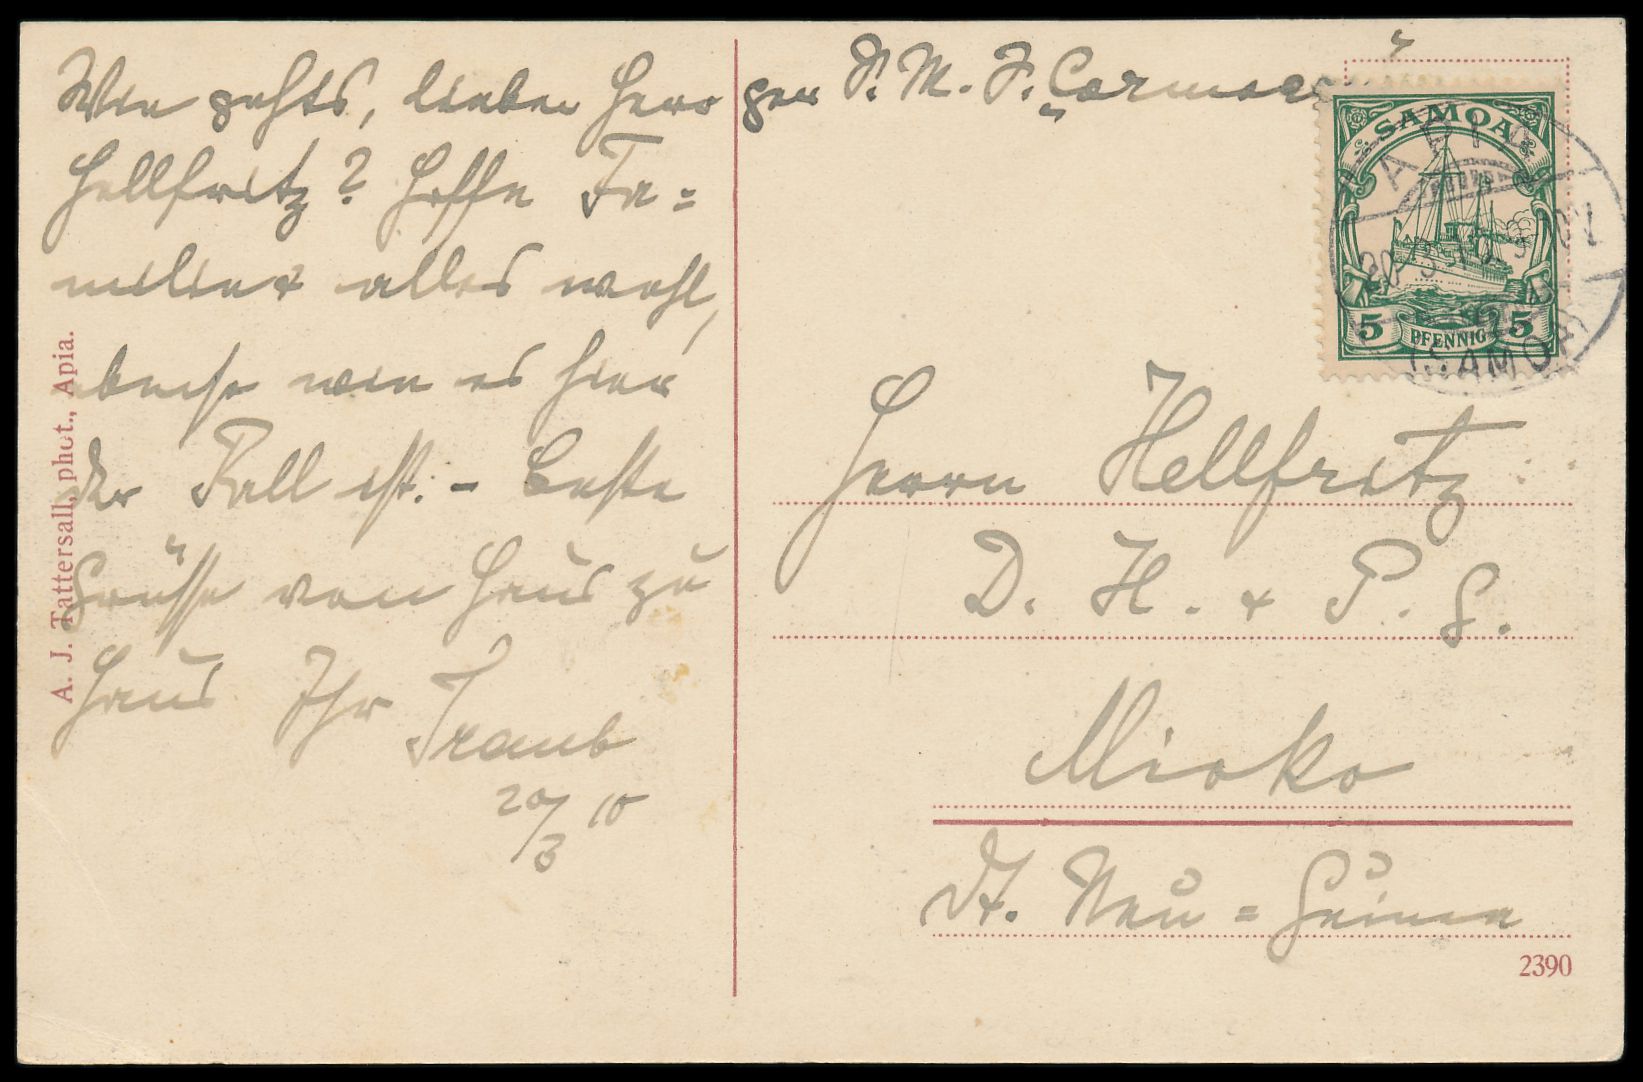 Wie gehts, lieber Herr
Hellfritz? Hoffe Fa=
milie & alles wohl,
ebenso wie es hier
der Fall ist. – Beste
Grüsse von Haus zu
Haus Ihr Traub
20/3 10
A. J. Tattersall, phot., Apia.
per S. M. S. „Cormoran“
SAMOA
5 PFENNIG 5
APIA
20 3 10
(SAMOA)
Herrn Hellfritz
D. H. & P. G.
Mioko
Dt. Neu=Guinea
2390